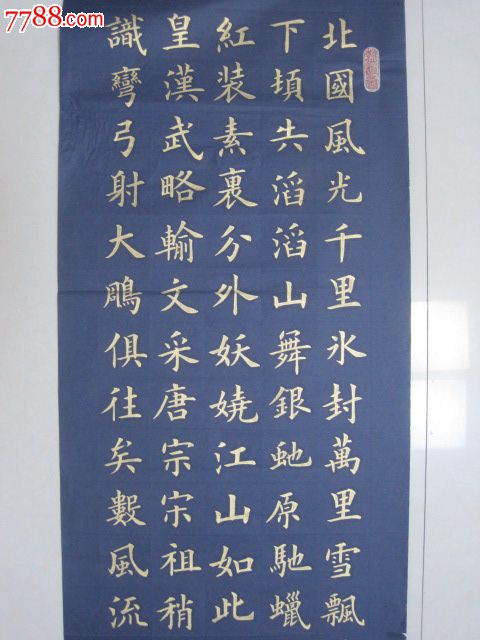 7788.com
北國風光千里氷封萬里雪飄
下頓失滔滔山舞銀虵原馳蠟
紅装素裹分外妖嬈江山如此
皇漢武略輸文采唐宗宋祖稍
識彎弓射大鵰俱往矣數風流